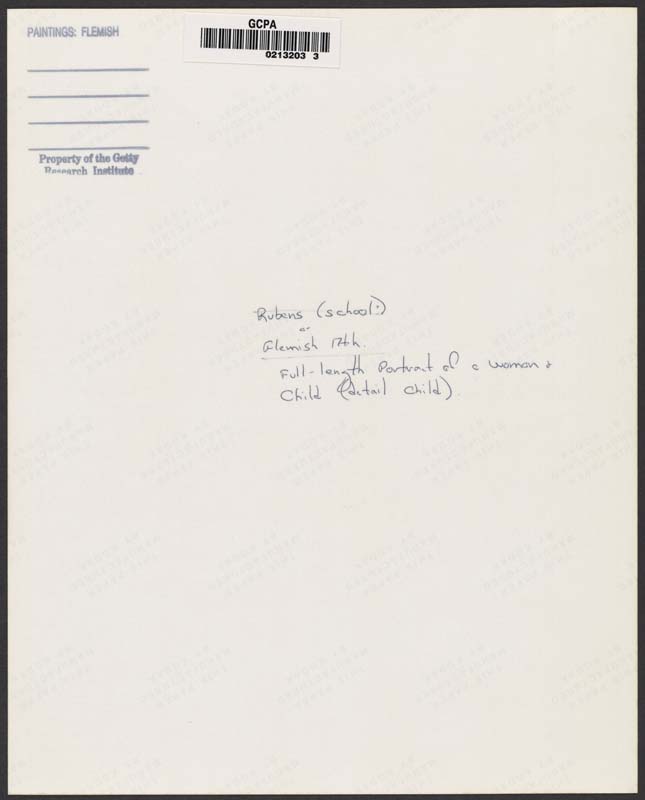 PAINTINGS: FLEMISH
GCPA
0213203 3
Property of the Getty
Research Institute
Rubens (school?)
or
Flemish 17th.
Full-length Portrait of a woman &
Child (detail child).